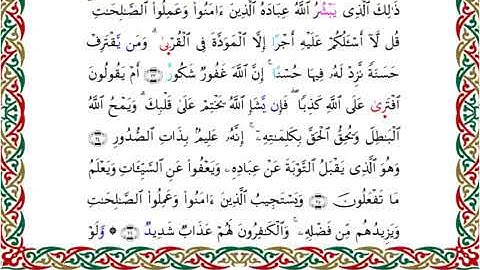 ذَٰلِكَ ٱلَّذِى يُبَشِّرُ ٱللَّهُ عِبَادَهُ ٱلَّذِينَ ءَامَنُوا۟ وَعَمِلُوا۟ ٱلصَّـٰلِحَـٰتِ
قُل لَّآ أَسْـَٔلُكُمْ عَلَيْهِ أَجْرًا إِلَّا ٱلْمَوَدَّةَ فِى ٱلْقُرْبَىٰ ۗ وَمَن يَقْتَرِفْ
حَسَنَةً نَّزِدْ لَهُۥ فِيهَا حُسْنًا ۚ إِنَّ ٱللَّهَ غَفُورٌ شَكُورٌ ﴿٢٣﴾ أَمْ يَقُولُونَ
ٱفْتَرَىٰ عَلَى ٱللَّهِ كَذِبًا ۖ فَإِن يَشَإِ ٱللَّهُ يَخْتِمْ عَلَىٰ قَلْبِكَ ۗ وَيَمْحُ ٱللَّهُ
ٱلْبَـٰطِلَ وَيُحِقُّ ٱلْحَقَّ بِكَلِمَـٰتِهِۦٓ ۚ إِنَّهُۥ عَلِيمٌۢ بِذَاتِ ٱلصُّدُورِ ﴿٢٤﴾
وَهُوَ ٱلَّذِى يَقْبَلُ ٱلتَّوْبَةَ عَنْ عِبَادِهِۦ وَيَعْفُوا۟ عَنِ ٱلسَّيِّـَٔاتِ وَيَعْلَمُ
مَا تَفْعَلُونَ ﴿٢٥﴾ وَيَسْتَجِيبُ ٱلَّذِينَ ءَامَنُوا۟ وَعَمِلُوا۟ ٱلصَّـٰلِحَـٰتِ
وَيَزِيدُهُم مِّن فَضْلِهِۦ ۚ وَٱلْكَـٰفِرُونَ لَهُمْ عَذَابٌ شَدِيدٌ ﴿٢٦﴾ ۞ وَلَوْ